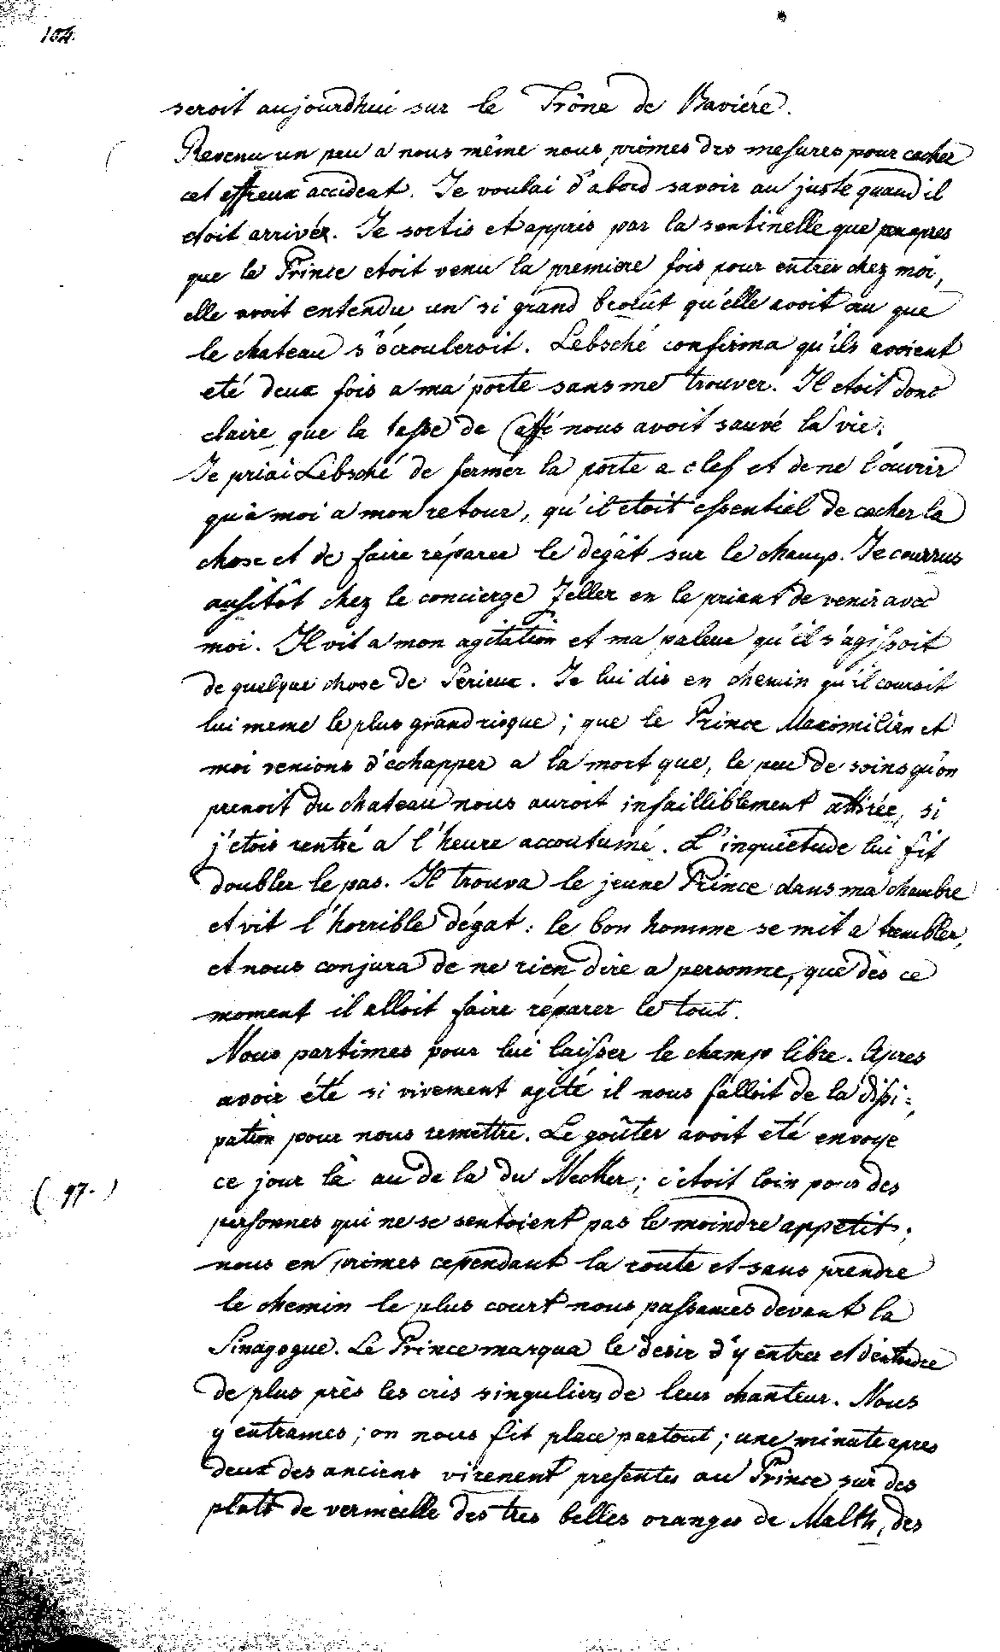 104.
seroit aujourdhui sur le Trône de Baviére.
Revenu un peu a nous même nous primes des mesures pour cacher
cet affreux accident. Je voulai d'abord savoir au juste quand il
etoit arrivér. Je sortis et appris par la sentinelle que peu apres
que le Prince etoit venu la premiere fois pour entrer chez moi,
elle avoit entendu un si grand bruit qu'elle avoit cru que
le chateau s'écrouleroit. Lebsché confirma qu'ils avoient
eté deux fois a ma porte sans me trouver. Il etoit donc
claire que la tasse de Caffé nous avoit sauvé la vie.
Je priai Lebsché de fermer la porte a clef et de ne l'ouvrir
qu'à moi a mon retour, qu'il etoit essentiel de cacher la
chose et de faire réparer le degât sur le champ. Je courrus
ausitôt chez le concierge Zeller en le priant de venir avec
moi. Il vit a mon agitation et ma paleur qu'il s'agissoit
de quelque chose de Serieux. Je lui dis en chemin qu'il couroit
lui meme le plus grand risque; que le Prince Maximilien et
moi venions d'échapper a la mort que, le peu de soins qu'on
prenoit du chateau nous auroit infailliblement attirée, si
j'etois rentré a l'heure accoutumé. L'inquietude lui fit
doubler le pas. Il trouva le jeune Prince dans ma chambre
et vit l'horrible dégat: le bon homme se mit a trembler,
et nous conjura de ne rien dire a personne, que dès ce
moment il alloit faire réparer le tout.
Nous partimes pour lui laisser le champ libre. Apres
avoir été si vivement agité il nous falloit de la dissi=
pation pour nous remettre. Le goûter avoit eté envoye
ce jour là au de la du Necker; c'etoit loin pour des
( 97. )
personnes qui ne se sentoient pas le moindre appetit;
nous en primes cependant la route et sans prendre
le chemin le plus court nous passames devant la
Sinagogue. Le Prince marqua le desir d'y entrer et d'entendre
de plus près les cris singuliers de leur chanteur. Nous
y entrames; on nous fit place partout; une minute apres
deux des anciens vinrent presenter au Prince sur des
plats de vermeille des tres belles oranges de Malth, des